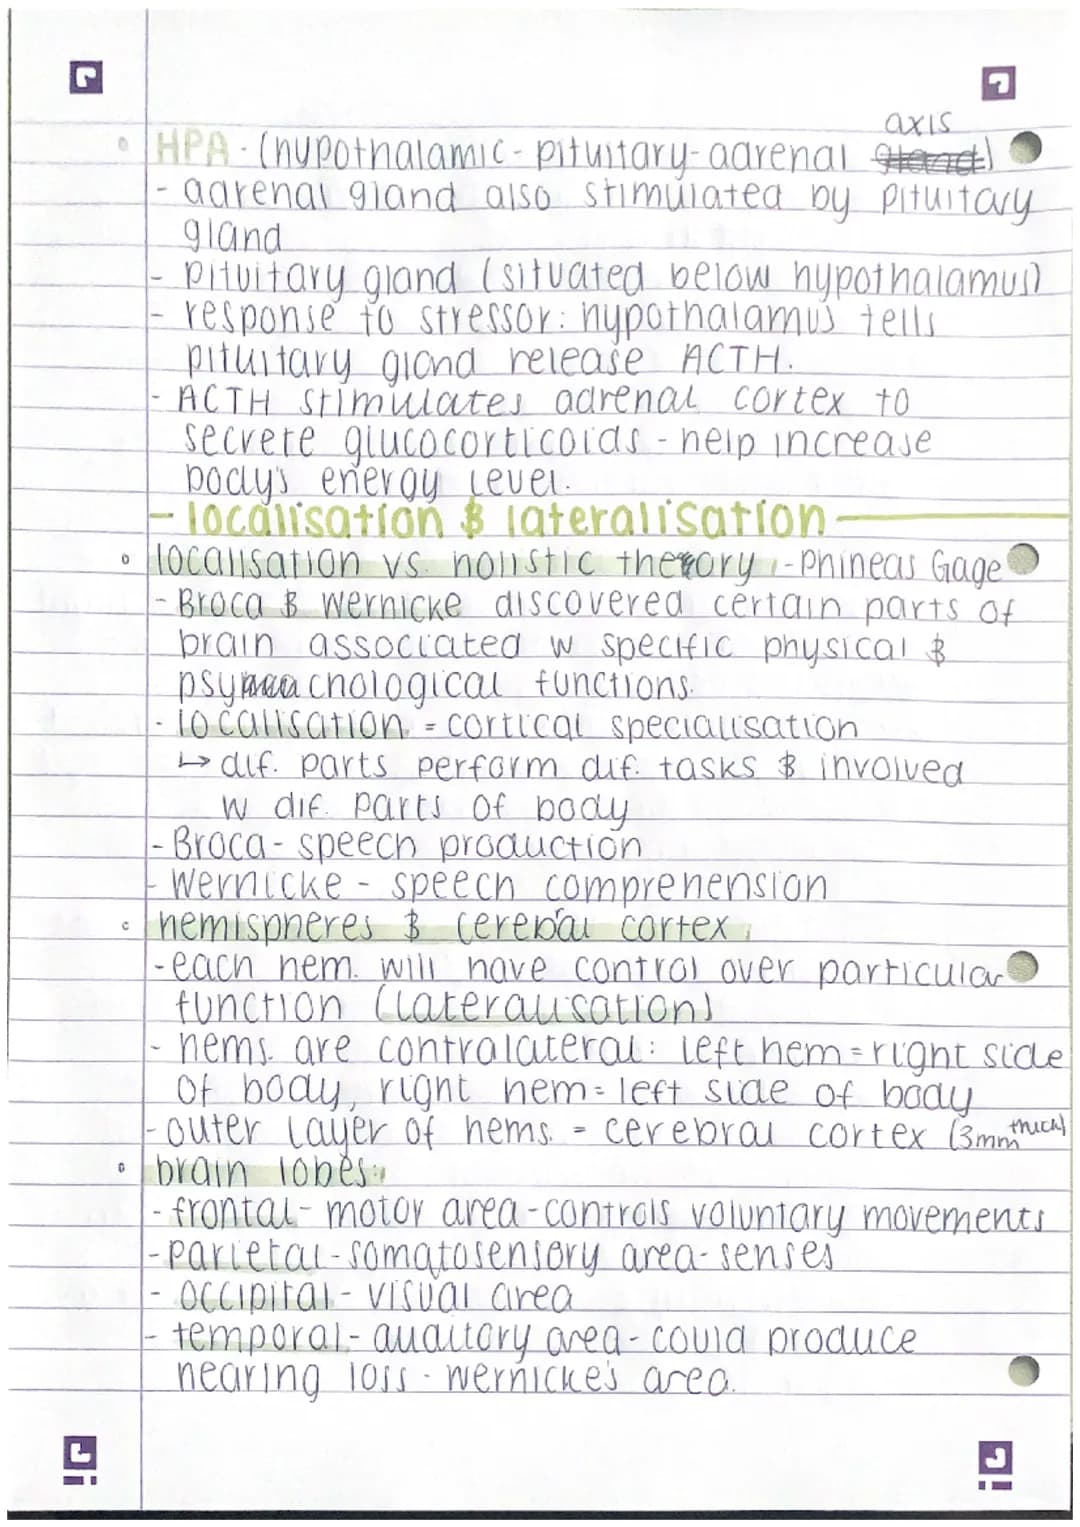 axis
HPA - (hypothalamic-pituitary-adrenal gland)
- adrenal gland also stimulated by pituitary
gland
- pituitary gland (situated below hypothalamus)
- response to stressor: hypothalamus tells
pituitary gland release ACTH.
- ACTH stimulates adrenal cortex to
secrete glucocorticoids - help increase
body's energy level.
- localisation & lateralisation
localisation vs. holistic theory - Phineas Gage
- Broca & Wernicke discovered certain parts of
brain associated w specific physical &
psychological functions.
- localisation = cortical specialisation
↳ dif. parts perform dif. tasks & involved
w dif. parts of body
- Broca - speech production
- Wernicke - speech comprehension
hemispheres & cerebral cortex
- each hem. will have control over particular
function (lateralisation)
- hems. are contralateral: left hem = right side
of body, right hem = left side of body
- outer layer of hems. = cerebral cortex (3mm thick)
brain lobes:
- frontal - motor area - controls voluntary movements
- parietal - somatosensory area - senses
- occipital - visual area
- temporal - auditory area - could produce
hearing loss - wernicke's area.